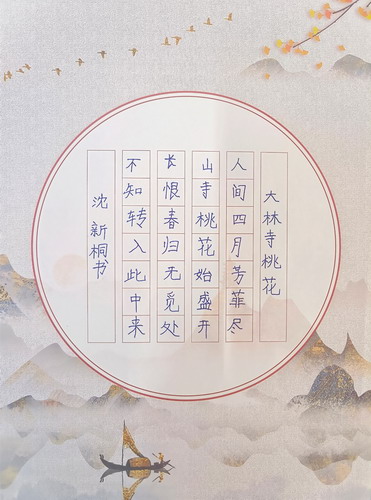 大林寺桃花
人间四月芳菲尽
山寺桃花始盛开
长恨春归无觅处
不知转入此中来
沈新桐书